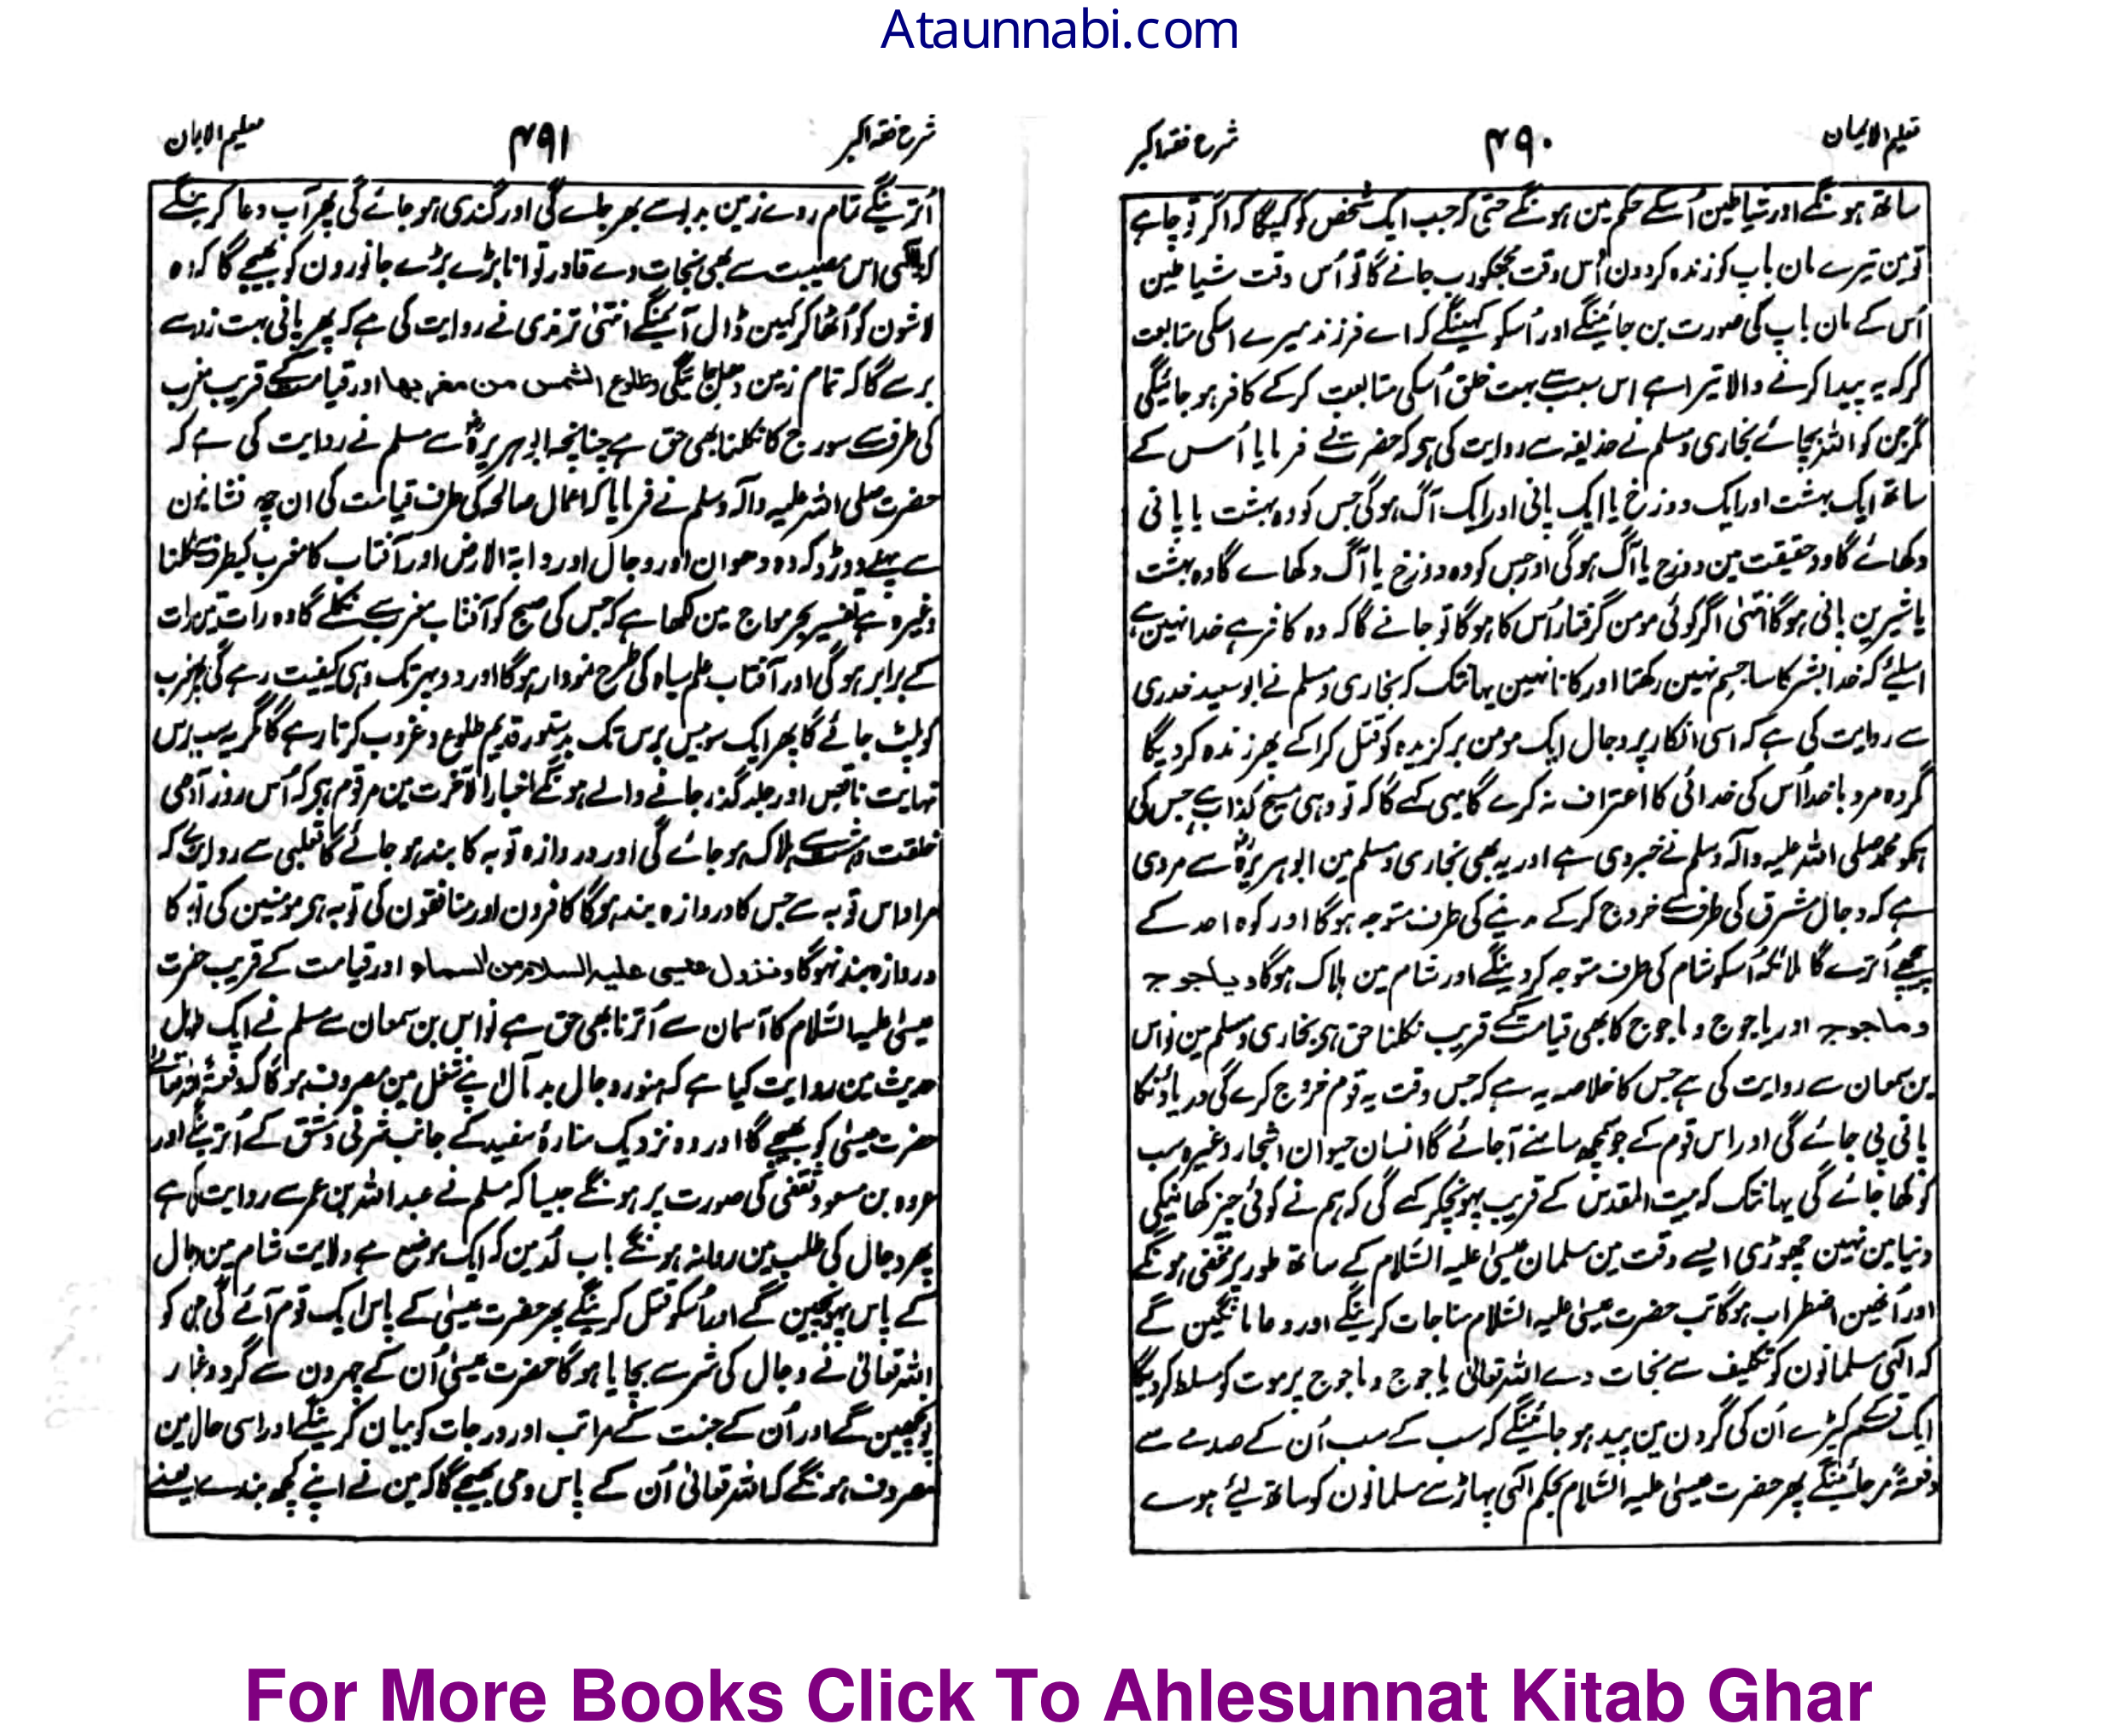 Ataunnabi.com
تعلیم الایمان
۴۹۰
شرح فقہ اکبر
ساتھ ہونگے اور شیاطین اُسکے حکم مین ہونگے حتی کہ جب ایک شخص کو کہیگا کہ اگر تو چاہے
تو مین تیرے مان باپ کو زندہ کردون اُس وقت مجھکو رب جانے گا تو اُس وقت شیاطین
اُس کے مان باپ کی صورت بن جائینگے اور اُسکو کہینگے کہ اے فرزند میرے اسکی متابعت
کر کہ یہ پیدا کرنے والا تیرا ہے اس سبب سے بہت خلق اُسکی متابعت کرکے کافر ہو جائیگی
مگر جن کو اللہ بچائے بخاری و مسلم نے حذیفہ سے روایت کی ہی کہ حضرت نے فرمایا اُس کے
ساتھ ایک بہشت اور ایک دوزخ یا ایک پانی اور ایک آگ ہوگی جس کو وہ بہشت یا پانی
دکھائے گا وہ حقیقت مین دوزخ یا آگ ہوگی اور جس کو وہ دوزخ یا آگ دکھاے گا وہ بہشت
یا شیرین پانی ہوگا انتہیٰ اگر کوئی مومن گرفتار اُس کا ہوگا تو جانے گا کہ وہ کافر ہے خدا نہین ہے
اسلیے کہ خدا بشر کا سا جسم نہین رکھتا اور کانا نہین یہانتک کہ بخاری و مسلم نے ابو سعید خدری
سے روایت کی ہے کہ اسی انکار پر دجال ایک مومن برگزیدہ کو قتل کراکے پھر زندہ کردیگا
مگر وہ مرد باخدا اُس کی خدائی کا اعتراف نہ کرے گا یہی کہے گا کہ تو وہی مسیح کذاب ہے جس کی
ہمکو محمد صلی اللہ علیہ وآلہ وسلم نے خبر دی ہے اور یہ بھی بخاری و مسلم مین ابو ہریرہؓ سے مروی
ہے کہ دجال مشرق کی طرف سے خروج کرکے مدینے کی طرف متوجہ ہوگا اور کوہ احد کے
پیچھے اُترے گا ملائکہ اُسکو شام کی طرف متوجہ کردینگے اور شام مین ہلاک ہوگا و یاجوج
و ماجوج اور یاجوج و ماجوج کا بھی قیامت کے قریب نکلنا حق ہی بخاری و مسلم مین نواس
بن سمعان سے روایت کی ہے جس کا خلاصہ یہ ہے کہ جس وقت یہ قوم خروج کرے گی دریاؤنکا
پانی پی جائے گی اور اس قوم کے جو کچھ سامنے آجائے گا انسان حیوان اشجار وغیرہ سب
کو کھا جائے گی یہانتک کہ بیت المقدس کے قریب پہونچکر کہے گی کہ ہم نے کوئی چیز کھانیکی
دنیا مین نہین چھوڑی ایسے وقت مین مسلمان عیسیٰ علیہ السّلام کے ساتھ طور پر مخفی ہونگے
اور اُنھین اضطراب ہوگا تب حضرت عیسیٰ علیہ السّلام مناجات کرینگے اور دعا مانگین گے
کہ الٰہی مسلمانون کو تکلیف سے نجات دے اللہ تعالیٰ یاجوج و ماجوج پر موت کو مسلط کردیگا
ایک قسم کے کیڑے اُن کی گردن مین پیدا ہو جائینگے کہ سب کے سب اُن کے صدمے سے
دفعۃً مرجائینگے پھر حضرت عیسیٰ علیہ السّلام بحکم الٰہی پہاڑ سے مسلمانون کو ساتھ لیے ہوے
شرح فقہ اکبر
۴۹۱
تعلیم الایمان
اُترینگے تمام روے زمین بدبو سے بھر جاے گی اور گندی ہو جائے گی پھر آپ دعا کرینگے
کہ الٰہی اس مصیبت سے بھی نجات دے قادر توانا بڑے بڑے جانورون کو بھیجے گا کہ وہ
لاشون کو اُٹھا کر کہین ڈال آئینگے انتہیٰ ترمذی نے روایت کی ہے کہ پھر پانی بہت زور سے
برسے گا کہ تمام زمین دھل جائیگی و طلوع الشمس من مغربها اور قیامت کے قریب مغرب
کی طرف سے سورج کا نکلنا بھی حق ہے چنانچہ ابو ہریرہؓ سے مسلم نے روایت کی ہے کہ
حضرت صلی اللہ علیہ وآلہ وسلم نے فرمایا کہ اعمال صالحہ کی طرف قیامت کی ان چھ نشانیون
سے پہلے دوڑو کہ وہ دھوان اور دجال اور دابۃ الارض اور آفتاب کا مغرب کیطرف سے نکلنا
وغیرہ ہے تفسیر بحر مواج مین لکھا ہے کہ جس کی صبح کو آفتاب مغرب سے نکلے گا وہ رات تین رات
کے برابر ہوگی اور آفتاب علم سیاہ کی طرح نمودار ہوگا اور دوپہر تک وہی کیفیت رہے گی پھر مغرب
کو پلٹ جائے گا پھر ایک سو بیس برس تک بدستور قدیم طلوع و غروب کرتا رہے گا مگر یہ سب برس
نہایت ناقص اور جلد گذر جانے والے ہونگے اخبار الآخرت مین مرقوم ہی کہ اُس روز آدھی
خلقت دہشت سے ہلاک ہو جائے گی اور دروازہ توبہ کا بند ہو جائے گا ثعلبی سے روایت ہے کہ
مراد اس توبہ سے جس کا دروازہ بند ہوگا کافرون اور منافقون کی توبہ ہی مومنین کی توبہ کا
دروازہ بند نہوگا و نزول عیسی علیہ السلام من السماء اور قیامت کے قریب حضرت
عیسیٰ علیہ السّلام کا آسمان سے اُترنا بھی حق ہے نواس بن سمعان سے مسلم نے ایک طویل
حدیث مین روایت کیا ہے کہ ہنوز دجال بدمآل اپنے شغل مین مصروف ہوگا کہ دفعۃً اللہ تعالیٰ
حضرت عیسیٰ کو بھیجے گا اور وہ نزدیک منارۂ سفید کے جانب شرقی دمشق کے اُترینگے اور
عروہ بن مسعود ثقفی کی صورت پر ہونگے جیسا کہ مسلم نے عبد اللہ بن عمر سے روایت کی ہے
پھر دجال کی طلب مین روانہ ہونگے باب لُد مین کہ ایک موضع ہے ولایت شام مین دجال
کے پاس پہونچین گے اور اُسکو قتل کرینگے پھر حضرت عیسیٰ کے پاس ایک قوم آئے گی جن کو
اللہ تعالیٰ نے دجال کی شر سے بچایا ہوگا حضرت عیسیٰ اُن کے چہرون سے گرد و غبار
پونچھین گے اور اُن کے جنت کے مراتب اور درجات کو بیان کرینگے اور اسی حال مین
مصروف ہونگے کہ اللہ تعالیٰ اُن کے پاس وحی بھیجے گا کہ مین نے اپنے کچھ بندے ایسے
For More Books Click To Ahlesunnat Kitab Ghar